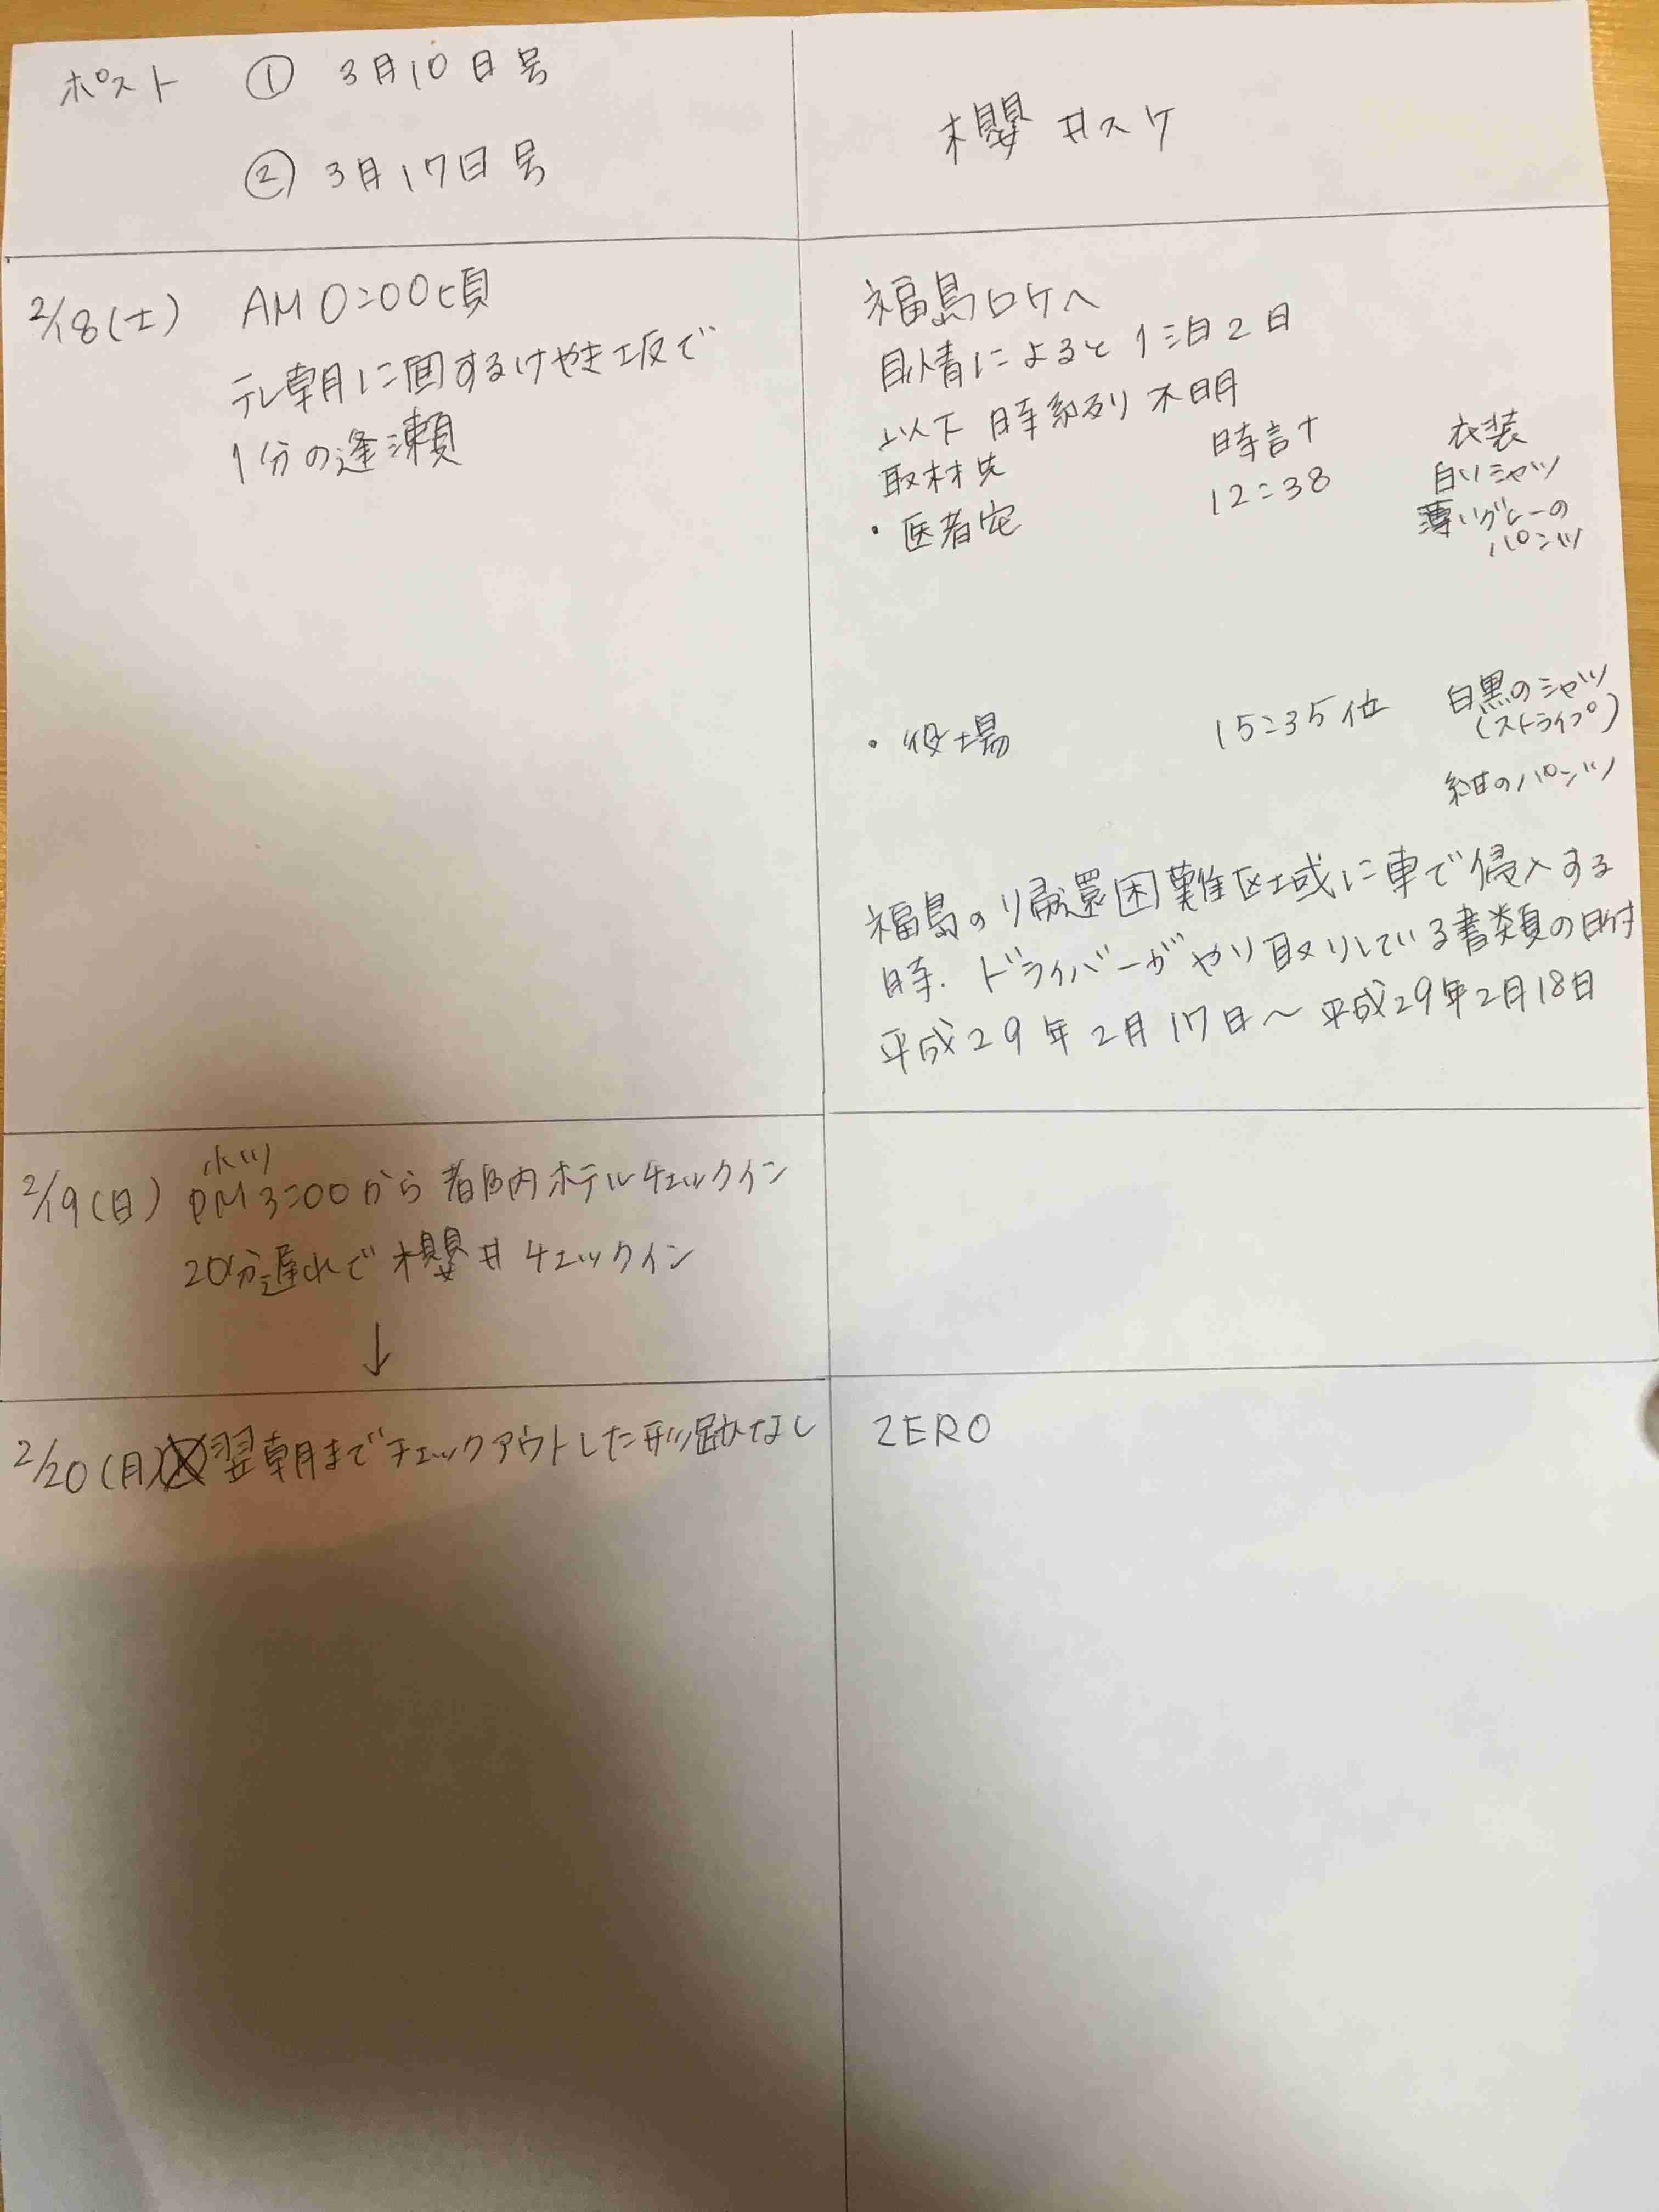 ポスト ① 3月10日号
② 3月17日号
櫻井スケ
2/18(土) AM0:00頃
テレ朝に面するけやき坂で
1分の逢瀬
福島ロケへ
目情によると1泊2日
以下時系列不明
取材先 時計 衣装
・医者宅 12:38 白いシャツ
薄いグレーの
パンツ
・役場 15:35位 白黒のシャツ
(ストライプ)
紺のパンツ
福島の帰還困難区域に車で侵入する
時、ドライバーがやり取りしている書類の日付
平成29年2月17日～平成29年2月18日
2/19(日) PM3:00から都内ホテルチェックイン
20分遅れで櫻井チェックイン
↓
2/20(月) 翌朝までチェックアウトした形跡なし
ZERO